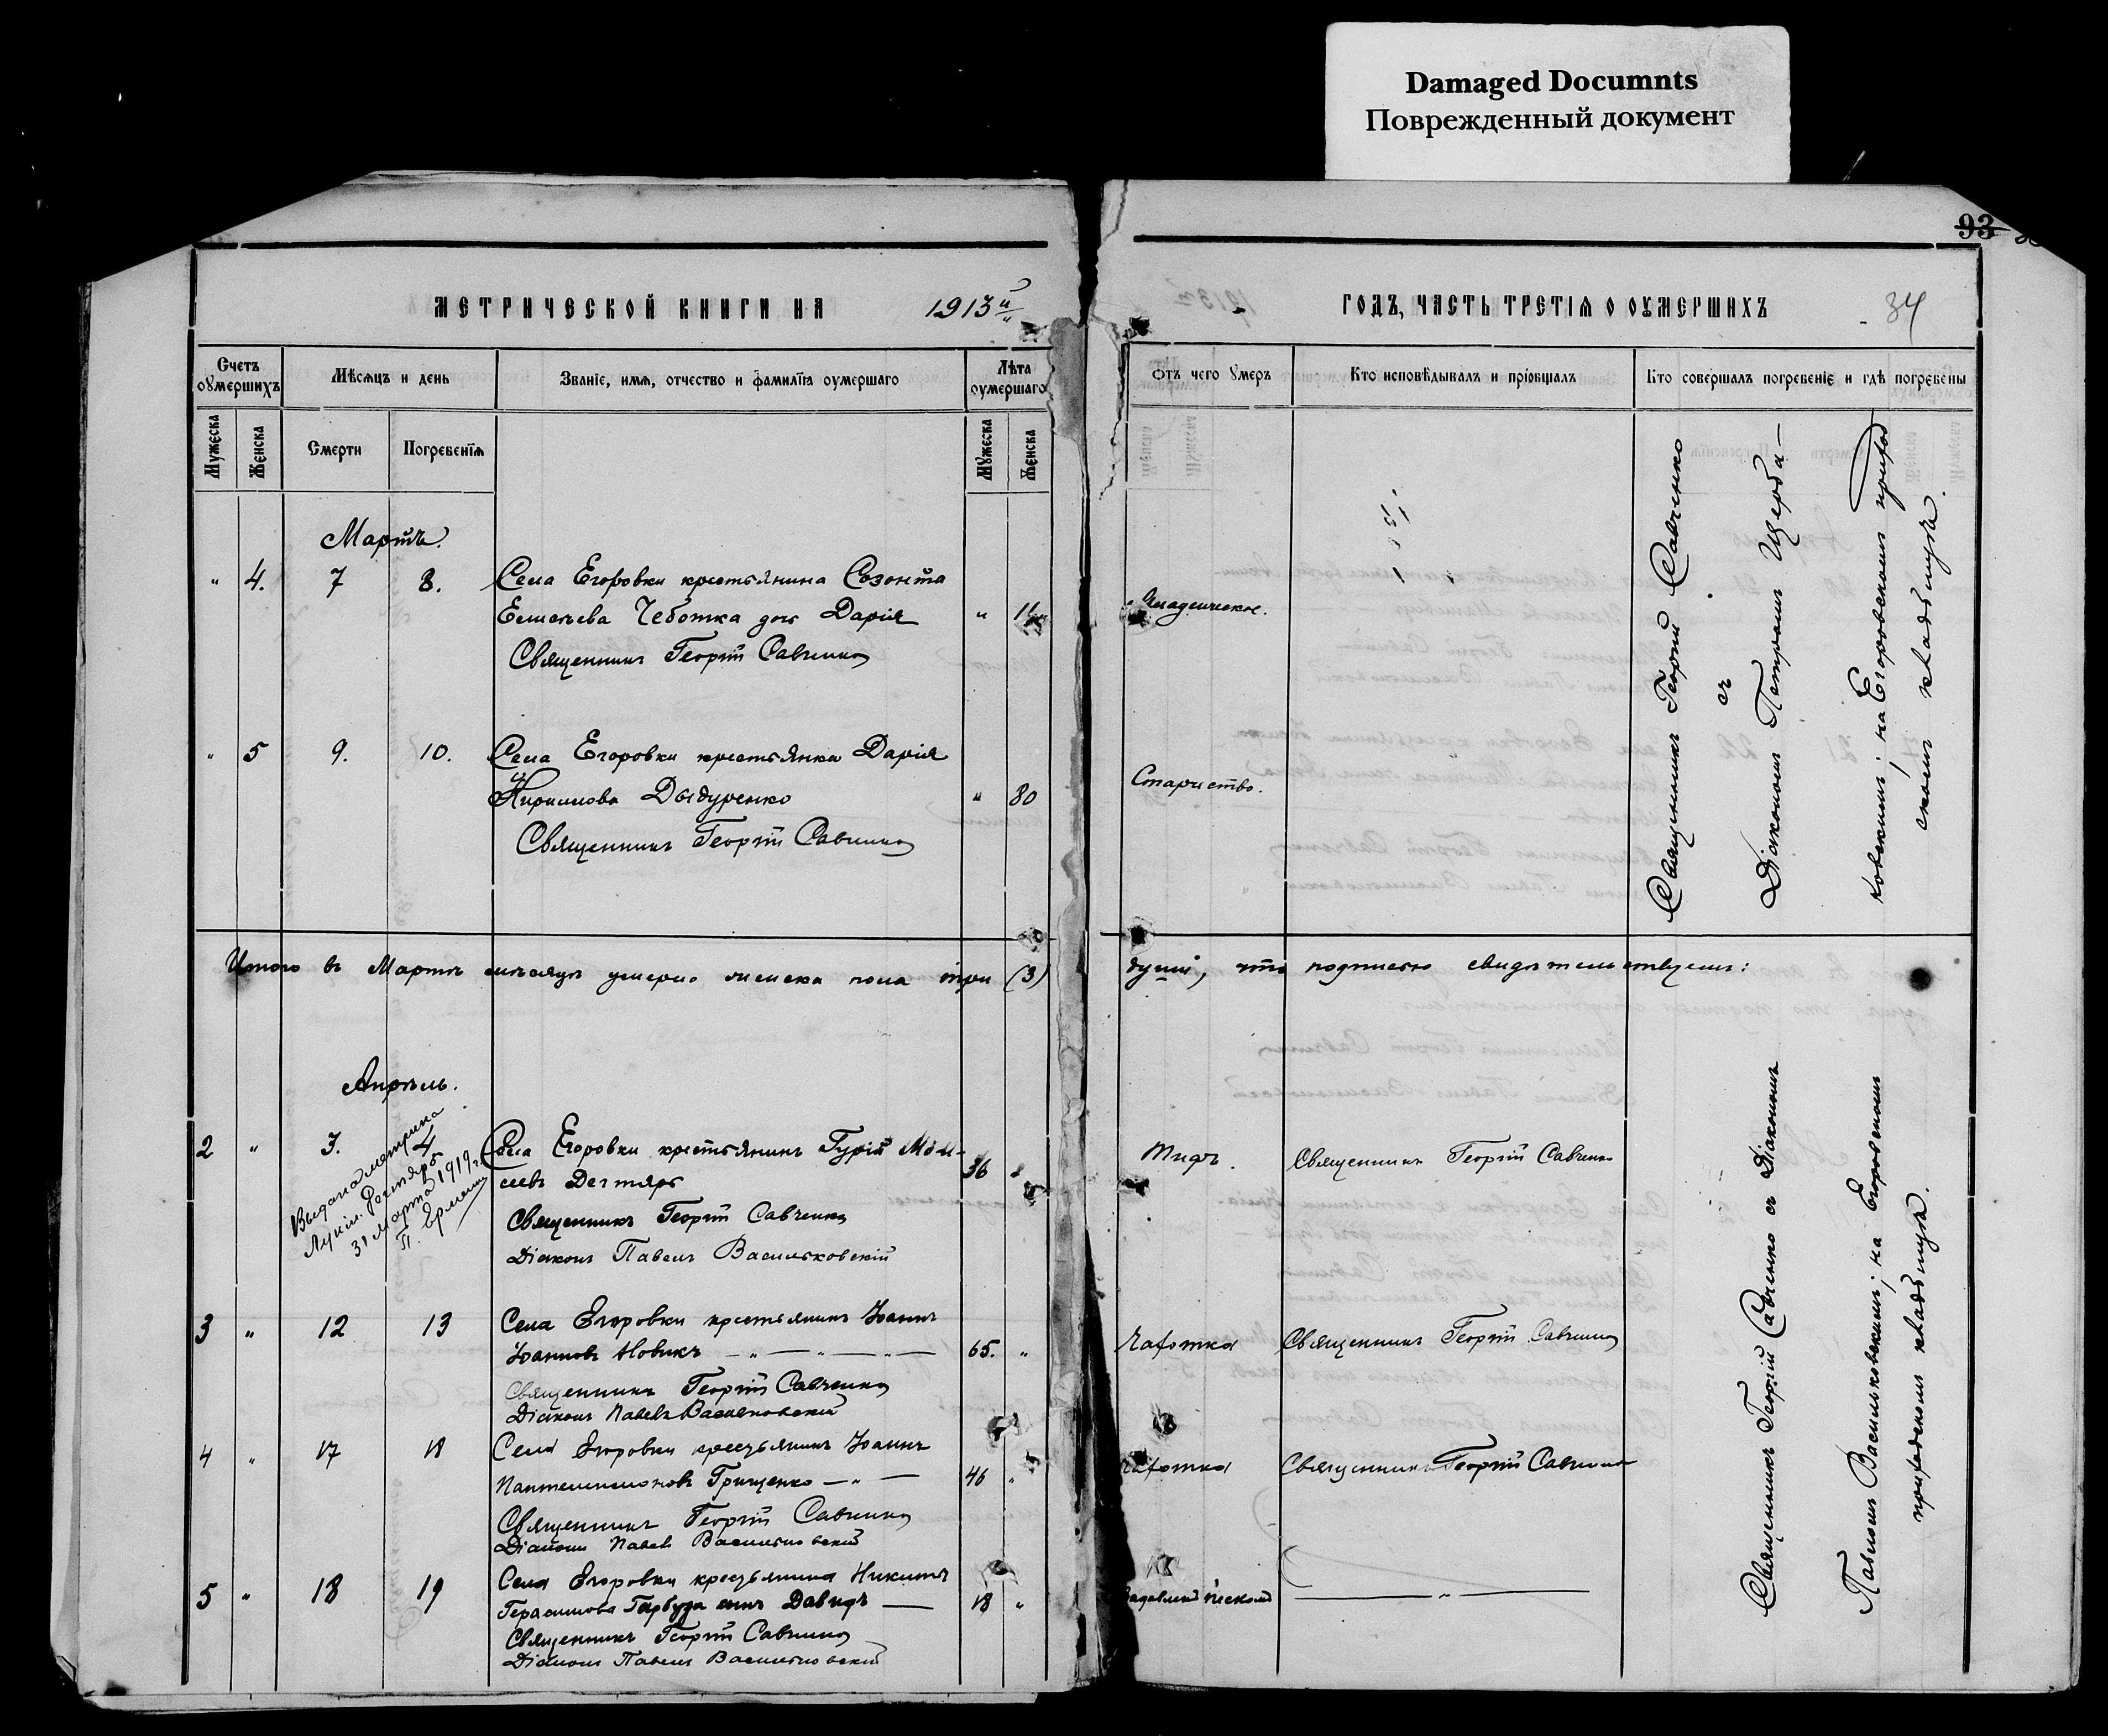 Damaged Documnts
Поврежденный документ
93
МЕТРИЧЕСКОЙ КНИГИ НА 1913й
ГОДЪ, ЧАСТЬ ТРЕТІЯ О ОУМЕРШИХЪ
34
Счетъ оумершихъ
Мѣсяцъ и день
Званіе, имя, отчество и фамилїѧ оумершаго
Лѣта оумершаго
Отъ чего умеръ
Кто исповѣдывалъ и пріобщалъ
Кто совершалъ погребеніе и гдѣ погребены
Мужеска
Женска
Смерти
Погребенїѧ
Мужеска
Женска
Мартъ.
" 4. 7 8. Села Егоровки крестьянина Созонта
Чеботка дочь Дарія "
Священникъ Георгій Савченко
" 5 9. 10. Села Егоровки крестьянка Дарія
Дыдуренко " 80 Старчество.
Священникъ Георгій Савченко
Священникъ Георгій Савченко
съ
Діакономъ Петромъ Щерба-
ковскимъ; на Егоровскомъ приход
скомъ кладбищѣ.
Итого въ Мартѣ мѣсяцѣ умерло женска пола три (3) душъ, что подписью свидѣтельствуемъ:
Апрѣль.
2 " 3. 4 Села Егоровки крестьянинъ Гурій Мои-
сеевъ Дегтярь 36 " Тифъ. Священникъ Георгій Савченко
Священникъ Георгій Савченко
Діаконъ Павелъ Васильковскій
Выдана метрика
Лукіи Дегтярь
31 марта 1919 г.
3 " 12 13 Села Егоровки крестьянинъ Іоаннъ
Іоанновъ Новикъ 65. " Чахотка Священникъ Георгій Савченко
Священникъ Георгій Савченко
Діаконъ Павелъ Васильковскій
4 " 17 18 Села Егоровки крестьянинъ Іоаннъ
Пантелеимоновъ Грищенко 46 " Чахотка Священникъ Георгій Савченко
Священникъ Георгій Савченко
Діаконъ Павелъ Васильковскій
5 " 18 19 Села Егоровки крестьянина Никиты
Герасимова Гарбуза сынъ Давидъ 18 " Задавленъ пескомъ "
Священникъ Георгій Савченко
Діаконъ Павелъ Васильковскій
Священникъ Георгій Савченко съ Діакономъ
Павломъ Васильковскимъ; на Егоровскомъ
приходскомъ кладбищѣ.